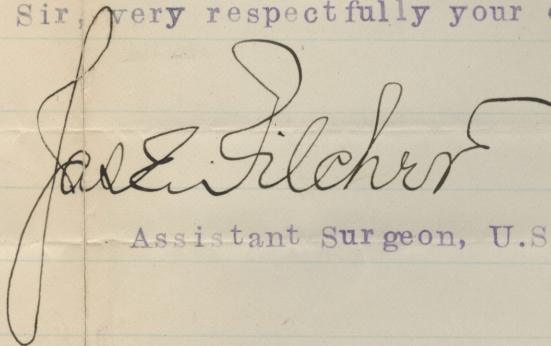 Sir, very respectfully your
Jas E. Pilcher
Assistant Surgeon, U.S